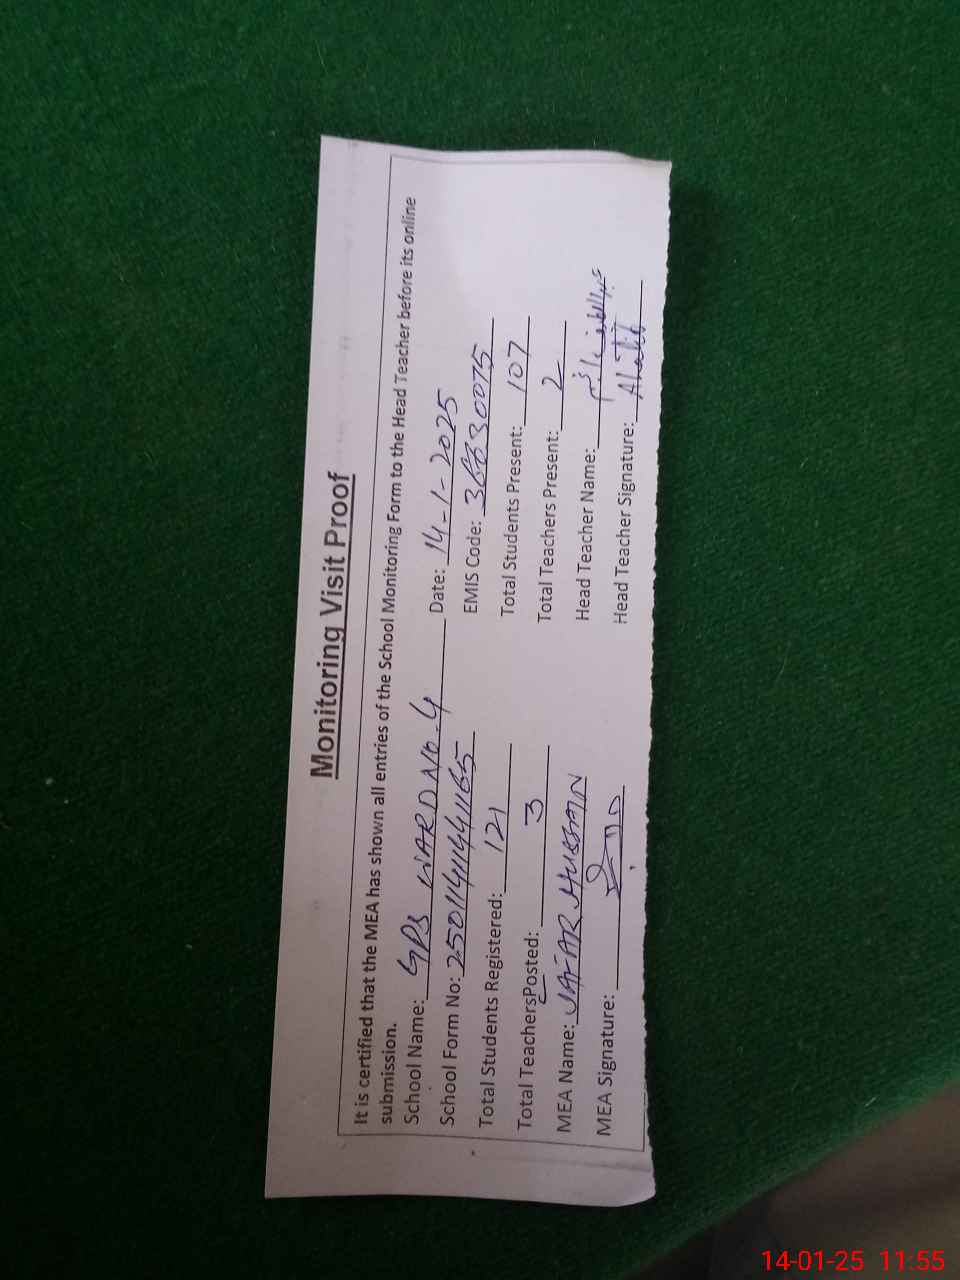 Monitoring Visit Proof
It is certified that the MEA has shown all entries of the School Monitoring Form to the Head Teacher before its online
submission.
School Name: GPS WARD NO. 4 Date: 14-1-2025
School Form No: 250114114441165 EMIS Code: 36630075
Total Students Registered: 121 Total Students Present: 107
Total TeachersPosted: 3 Total Teachers Present: 2
MEA Name: JAFAR HUSSAIN Head Teacher Name:
MEA Signature: Head Teacher Signature:
14-01-25 11:55